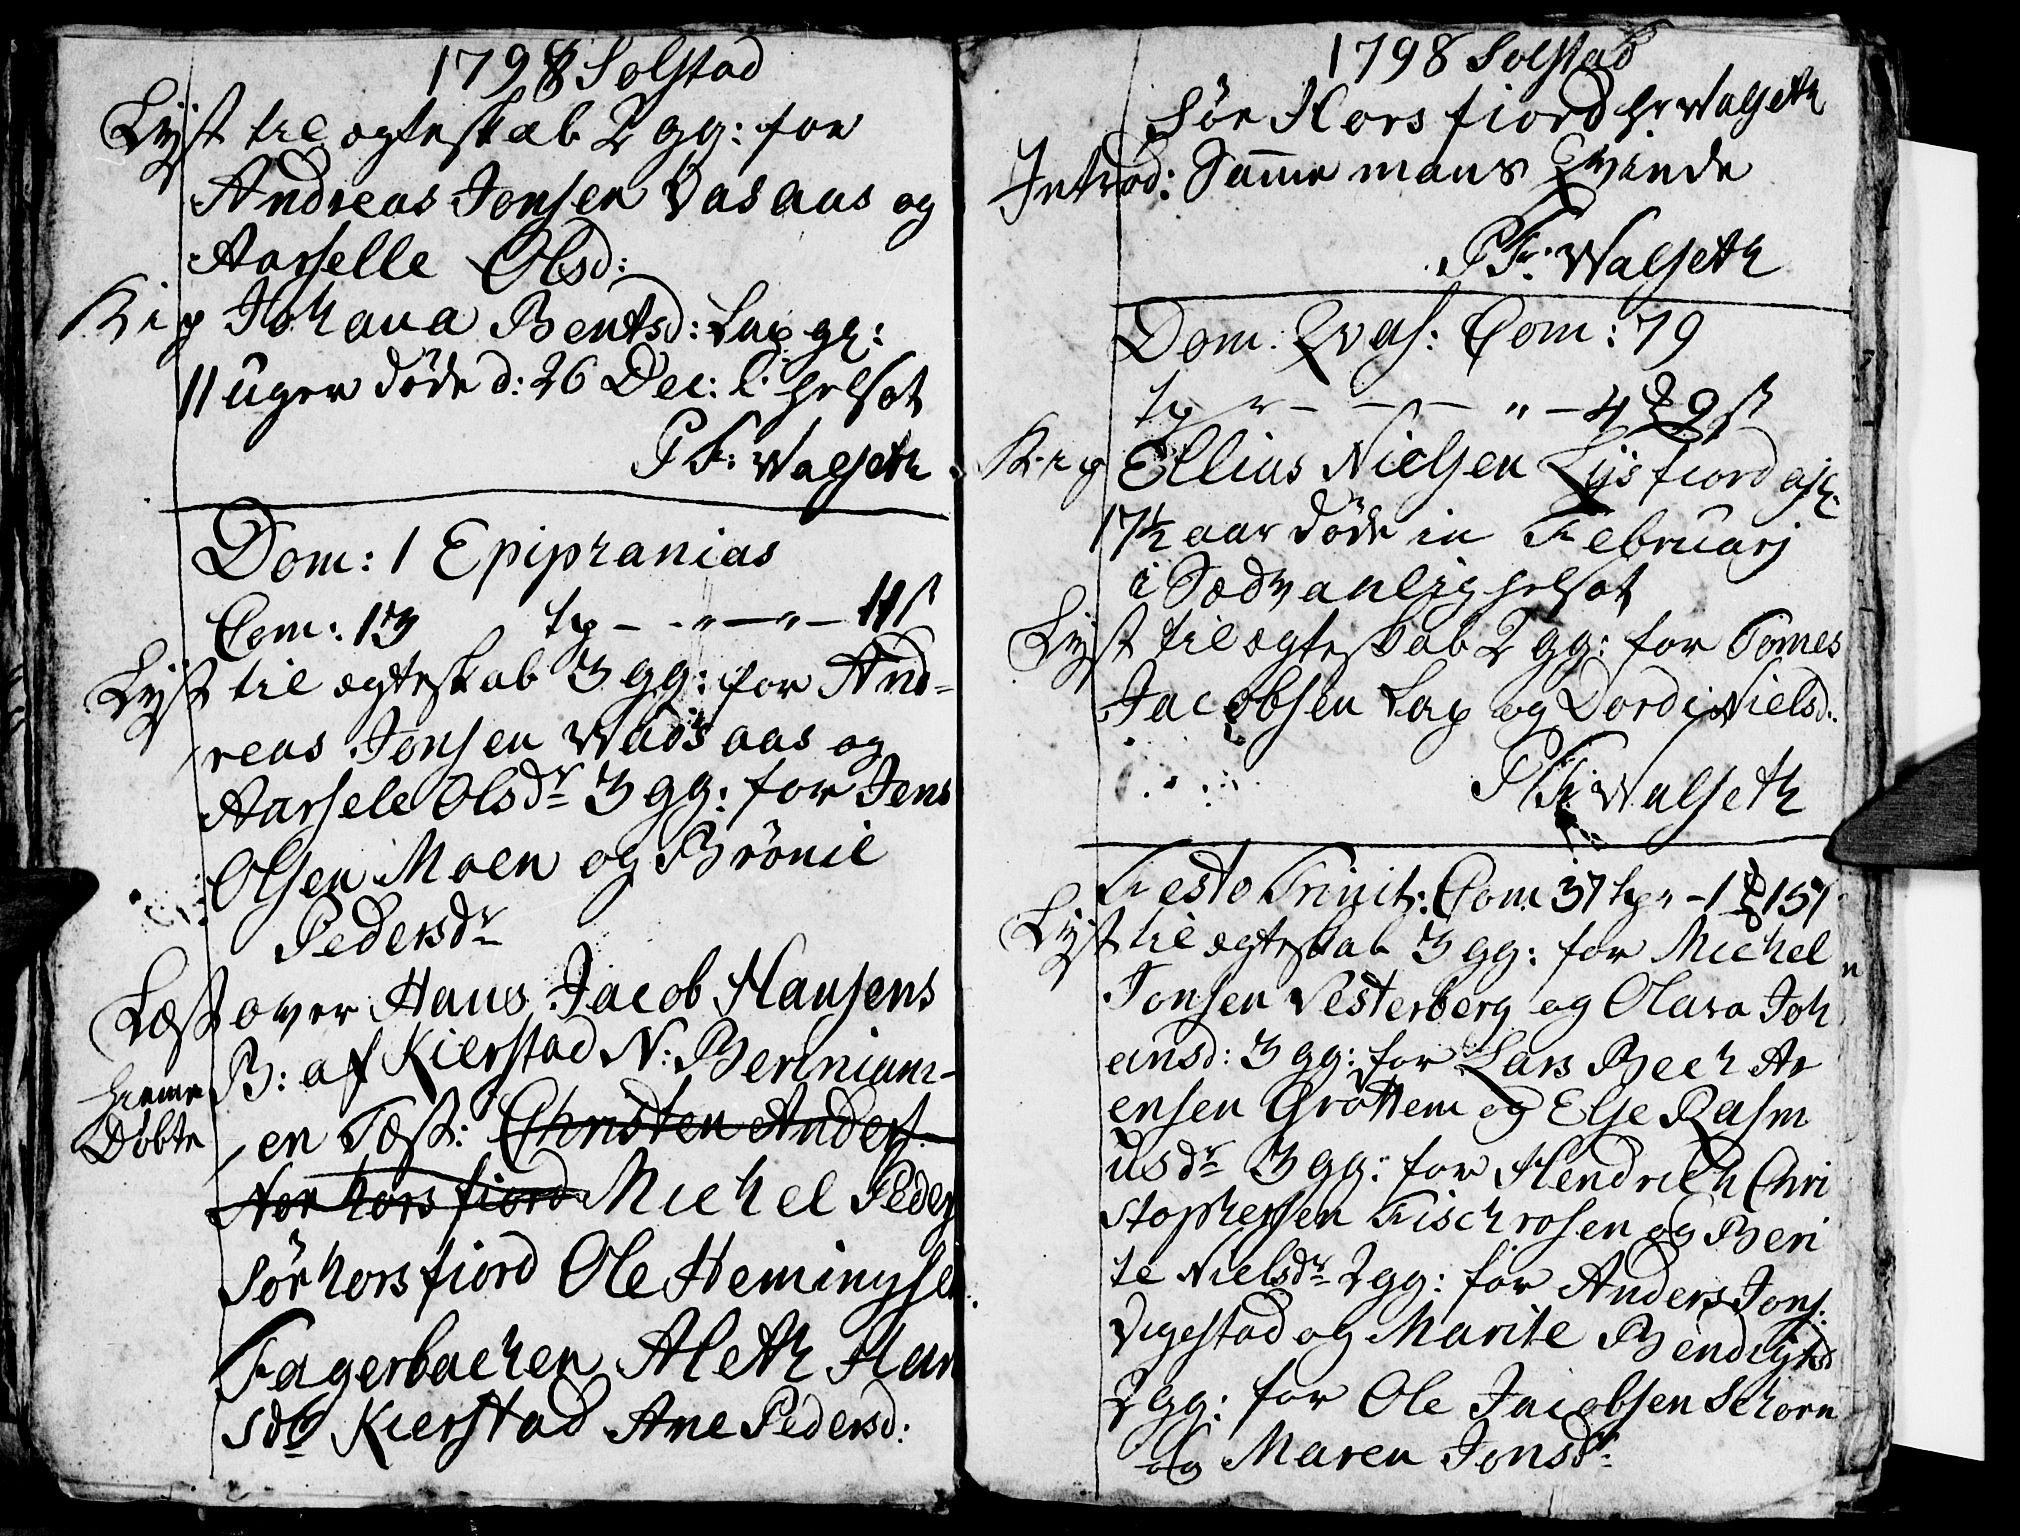 1798 Solstad
Lÿst til ægteskab 2 gg: for
Andreas Jonsen Vasaas og
Aarselle Olsd:
Kip Johana Bentsd: Lap gl:
11 uger døde d: 26 Dec: i helsot
P Fr: Walseth
Dom: 1 Epiphanias
Com: 13 tp – – " – " – 11 ß
Lÿst til ægteskab 3 gg: for And-
reas Jonsen Wadsaas og
Aarsele Olsdr 3 gg: for Jens
Olsen Moen og Brönil
Pedersdr
Læst over Hans Jacob Hansens
hieme B: af Kierstad N: Beriniam-
Døbte en Test: Christen Anders
Nor horsfiord Michel Peders
Sör horsfiord Ole Hemingsen
Fagerbachen Aleth Han
sdr Kierstad Ane Pedersd:
1798 Solstad
Sör Horsfiord hr Walseth
Introd: Samme mans Qvinde
P Fr: Walseth
Dom: Qvas: Com: 79
tp " – – – " – 4 9 ß
Kip Ellius Nielsen Lÿsfiord
17½ aar døde in Februarj
i Sædvanlig helsot
Lÿst til ægteskab 2 gg: for Tomes
Jacobsen Lap og Dordi Nielsd:
P Fr: Walseth
Festo Trinit: Com 37 tp " – 1 15
Lÿst til ægteskab 3 gg: for Michel
Jonsen Vesterberg og Olava Joh
ansd: 3 gg: for Lars Bech Ar
ensen Grøttem og Else Rasm
usdr 3 gg: for Hendrich Chri
stophersen Fischrosen og Beri
te Nielsdr 2 gg: for Anders Jons:
Vigestad og Marite Bendigtsd
2 gg: for Ole Jacobsen Schorn
og Maren Jonsdr: